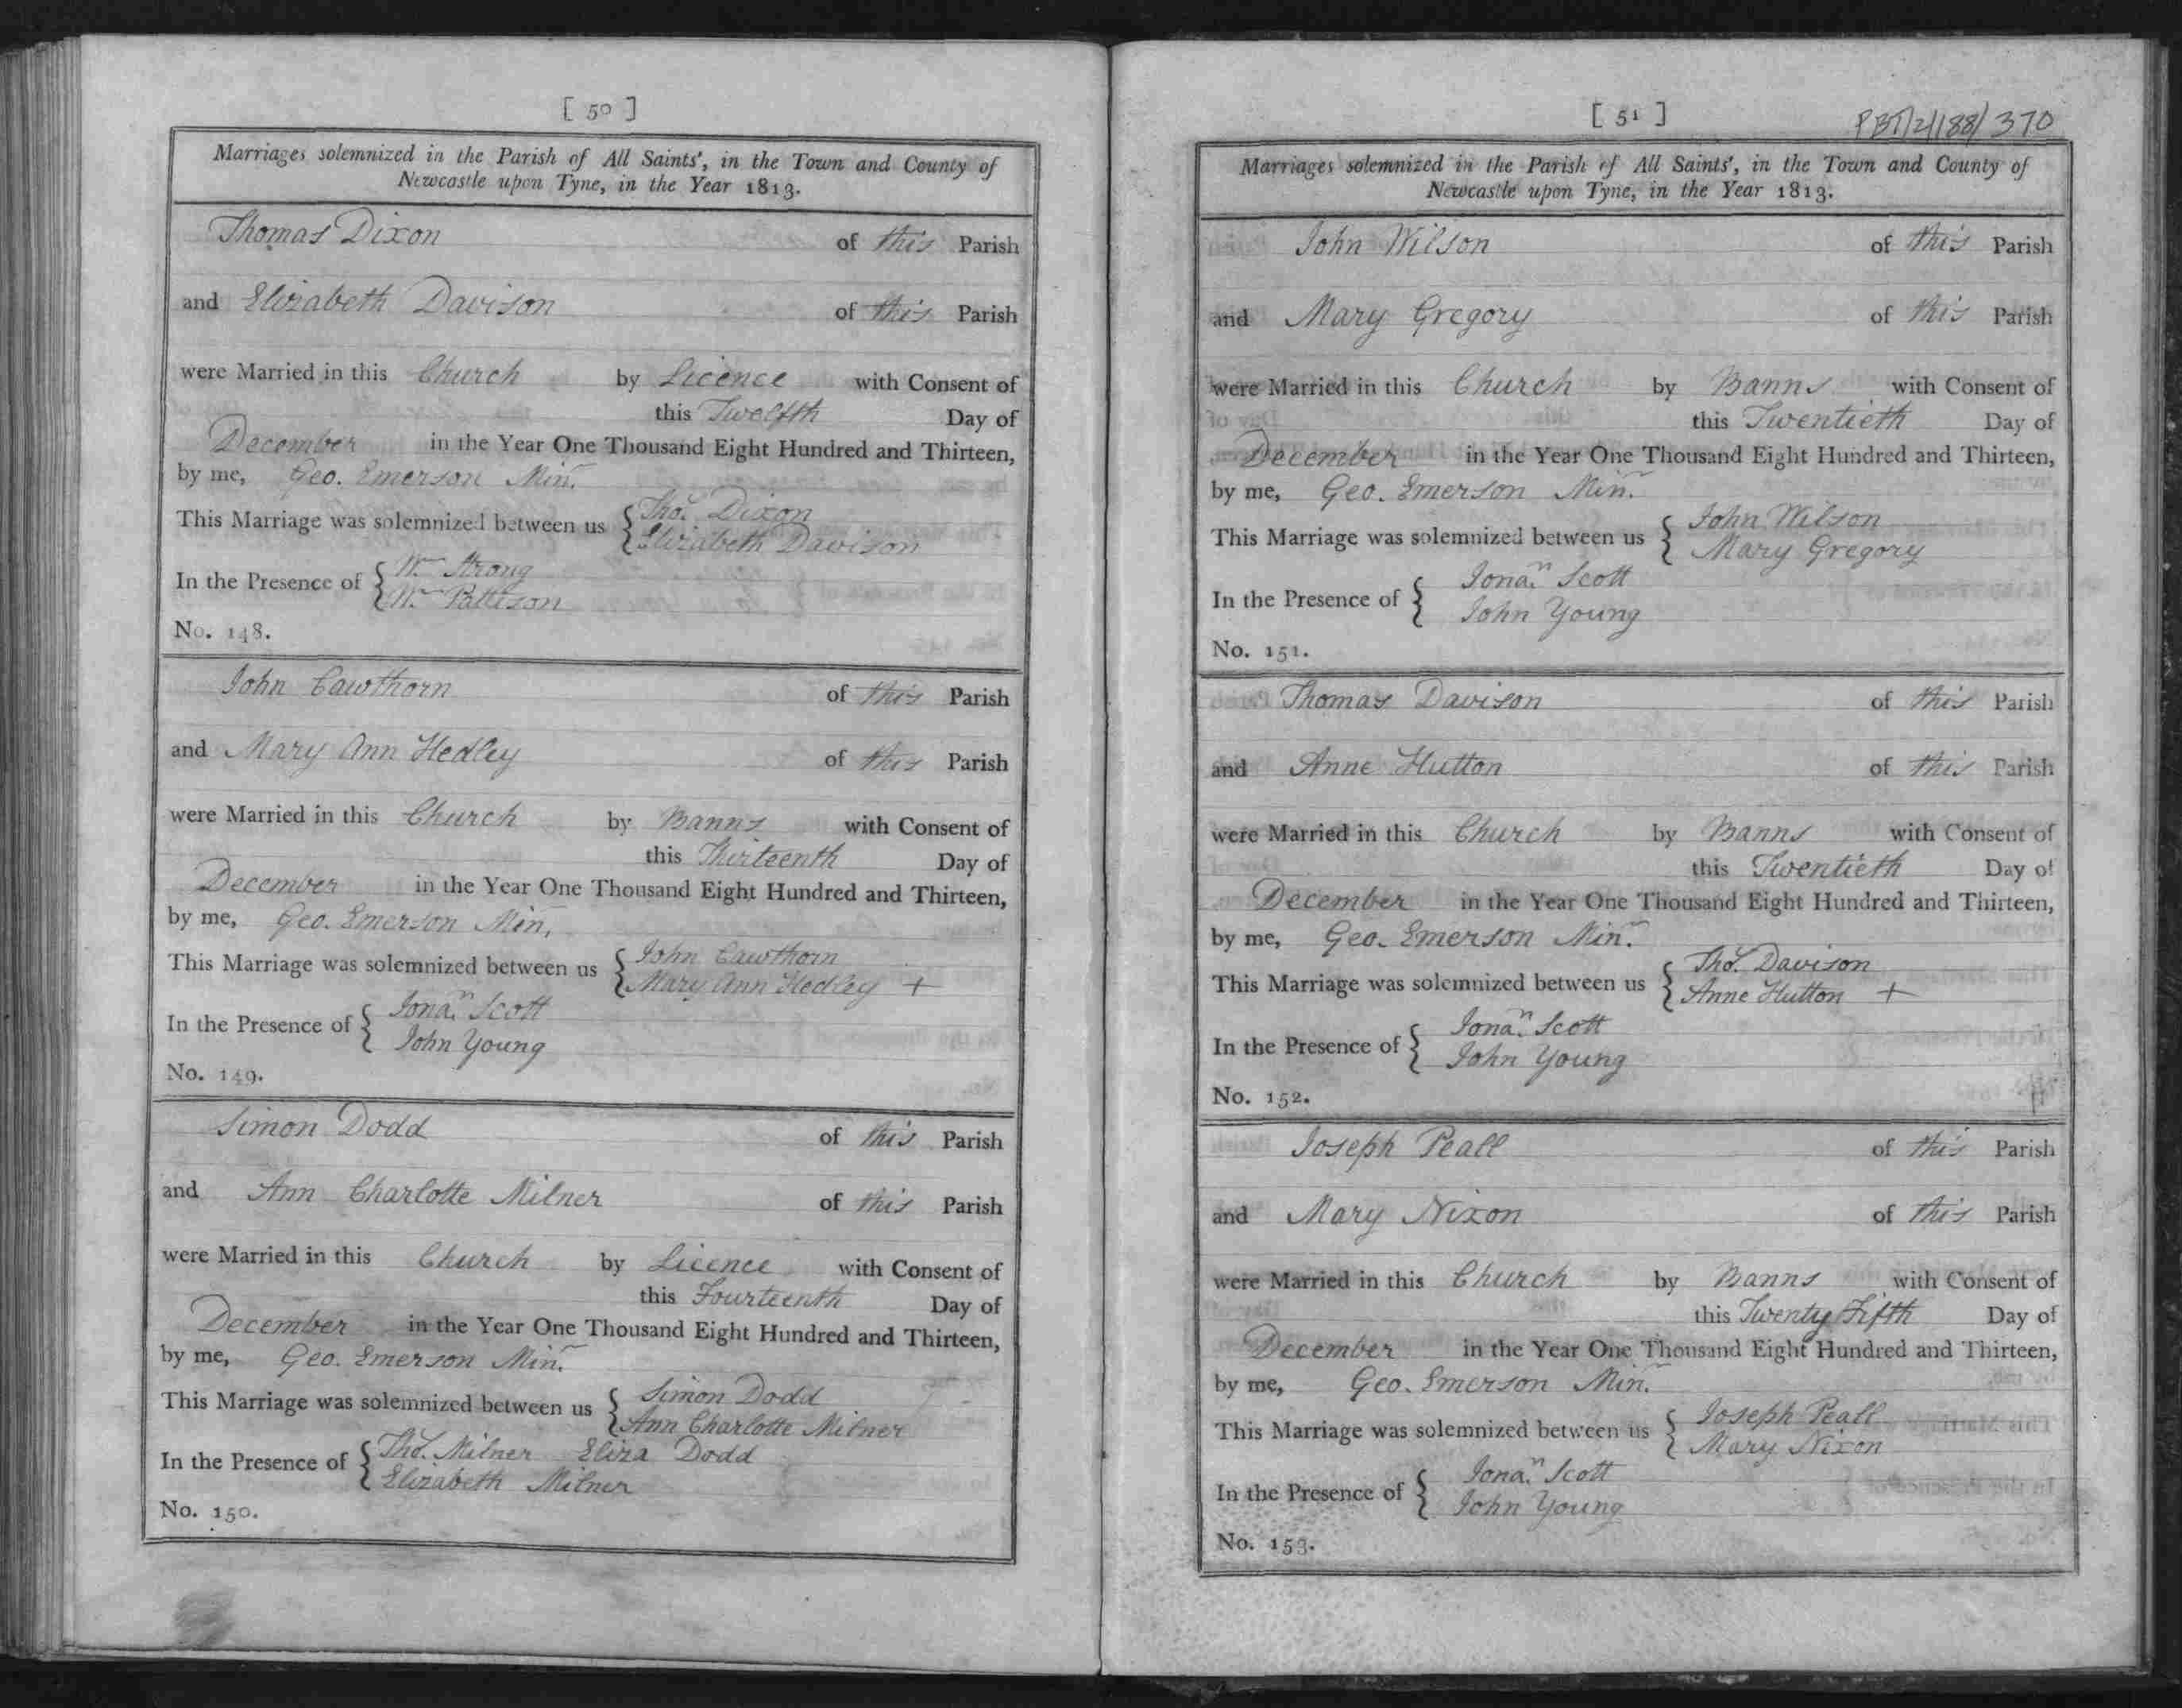 [ 50 ]
Marriages solemnized in the Parish of All Saints', in the Town and County of
Newcastle upon Tyne, in the Year 1813.
Thomas Dixon of this Parish
and Elizabeth Davison of this Parish
were Married in this Church by Licence with Consent of
this Twelfth Day of
December in the Year One Thousand Eight Hundred and Thirteen,
by me, Geo. Emerson Minr.
This Marriage was solemnized between us { Thos. Dixon
Elizabeth Davison
In the Presence of { Wm Strong
Wm Pattison
No. 148.
John Cawthorn of this Parish
and Mary Ann Hedley of this Parish
were Married in this Church by Banns with Consent of
this Thirteenth Day of
December in the Year One Thousand Eight Hundred and Thirteen,
by me, Geo. Emerson Minr.
This Marriage was solemnized between us { John Cawthorn
Mary Ann Hedley +
In the Presence of { Jonan. Scott
John Young
No. 149.
Simon Dodd of this Parish
and Ann Charlotte Milner of this Parish
were Married in this Church by Licence with Consent of
this Fourteenth Day of
December in the Year One Thousand Eight Hundred and Thirteen,
by me, Geo. Emerson Minr.
This Marriage was solemnized between us { Simon Dodd
Ann Charlotte Milner
In the Presence of { Thos. Milner Eliza Dodd
Elizabeth Milner
No. 150.
[ 51 ] PBT/2/188/370
Marriages solemnized in the Parish of All Saints', in the Town and County of
Newcastle upon Tyne, in the Year 1813.
John Wilson of this Parish
and Mary Gregory of this Parish
were Married in this Church by Banns with Consent of
this Twentieth Day of
December in the Year One Thousand Eight Hundred and Thirteen,
by me, Geo. Emerson Minr.
This Marriage was solemnized between us { John Wilson
Mary Gregory
In the Presence of { Jonan. Scott
John Young
No. 151.
Thomas Davison of this Parish
and Anne Hutton of this Parish
were Married in this Church by Banns with Consent of
this Twentieth Day of
December in the Year One Thousand Eight Hundred and Thirteen,
by me, Geo. Emerson Minr.
This Marriage was solemnized between us { Thos. Davison
Anne Hutton +
In the Presence of { Jonan. Scott
John Young
No. 152.
Joseph Peall of this Parish
and Mary Nixon of this Parish
were Married in this Church by Banns with Consent of
this Twenty Fifth Day of
December in the Year One Thousand Eight Hundred and Thirteen,
by me, Geo. Emerson Minr.
This Marriage was solemnized between us { Joseph Peall
Mary Nixon
In the Presence of { Jonan. Scott
John Young
No. 153.